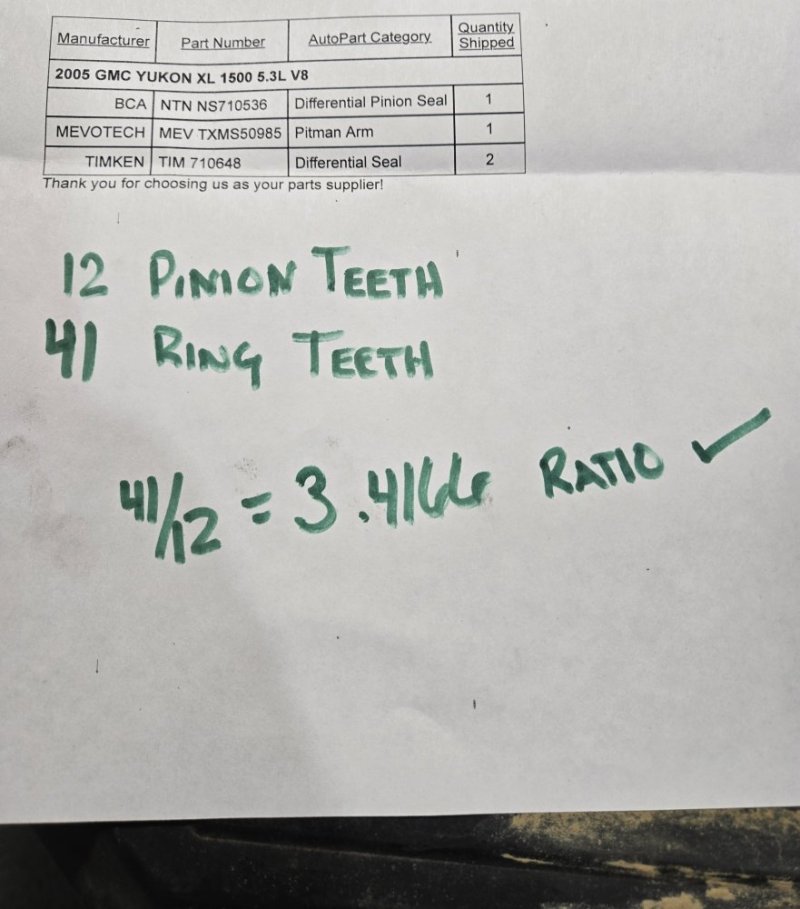 Manufacturer Part Number AutoPart Category Quantity Shipped
2005 GMC YUKON XL 1500 5.3L V8
BCA NTN NS710536 Differential Pinion Seal 1
MEVOTECH MEV TXMS50985 Pitman Arm 1
TIMKEN TIM 710648 Differential Seal 2
Thank you for choosing us as your parts supplier!
12 PINION TEETH
41 RING TEETH
41/12 = 3.4166 RATIO ✓